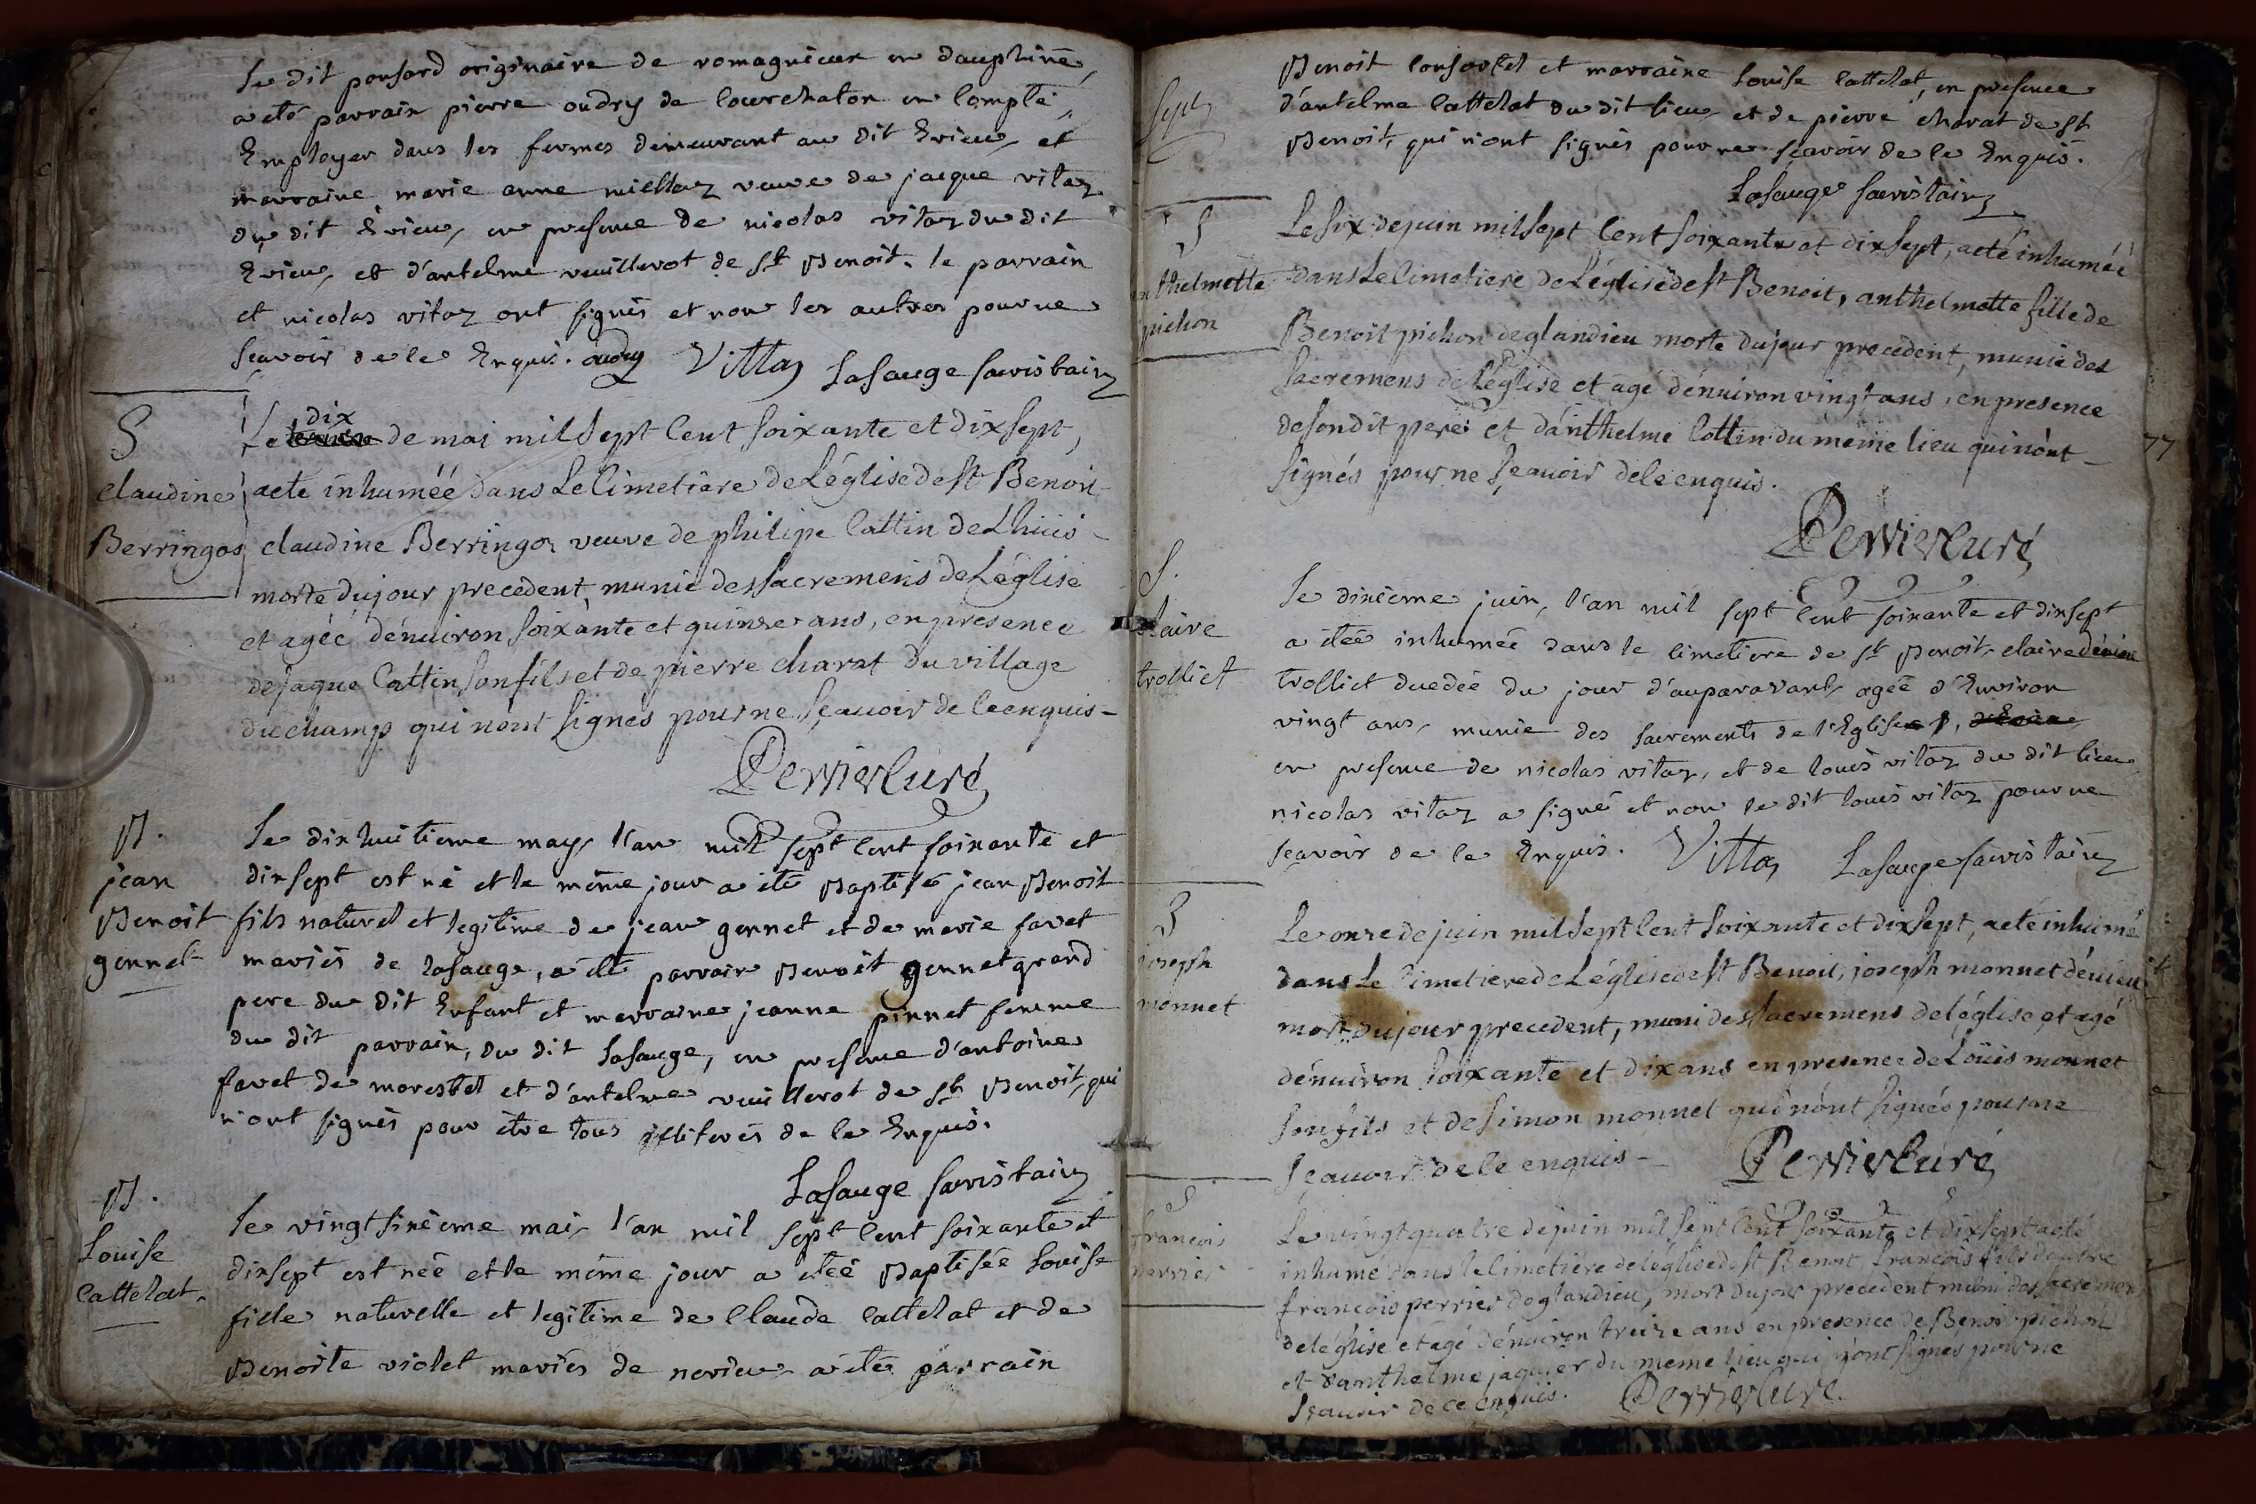 le dit ponsard originaire de romagnieux en dauphiné,
a eté parrain pierre oudry de courchaton en compté,
Employer dans les fermes demeurant au dit Evieu, et
marraine marie anne millaz veuve de jacque vitaz
du dit Evieu, en presence de nicolas vitaz du dit
Evieu, et d'antelme veuillerot de st Benoit, le parrain
et nicolas vitaz ont signés et non les autres pour ne
scavoir de ce Enquis. oudry Vittaz Lasauge sacristain
S
claudine
Berringos
dix
Le de mai mil sept cent soixante et dixsept,
aeté inhuméé dans Le Cimetiere de Léglise de st Benoit
claudine Berringoz veuve de philipe Cattin de Lhuis
morte du jour precedent, munie des sacremens de Léglise
et agéé dénuiron soixante et quinze ans, en presence
de jaque Cattin son fils et de pierre charat du village
du champ qui nònt signés pour ne sçauoir de ce enquis -
Perrier Curé
B.
jean
Benoit
gonnet
Le dixhuitieme may, l'an mil sept cent soixante et
dixsept est né et le même jour a été Baptisé jean Benoit
fils naturel et legitime de jean gonnet et de marie favet
mariés de lasauge, a été parrain Benoit gonnet grand
pere du dit Enfant et marraine jeanne pinnet femme
du dit parrain, du dit Lasauge, en presence d'antoine
favet de morestel et d'antelme veuillerot de st Benoit, qui
n'ont signés pour être tous illiterés de ce Enquis.
Lasauge sacristain
B.
Louise
Cattelat.
Le vingtsixieme mai, l'an mil sept cent soixante et
dixsept est néé et le même jour a étéé Baptisée Louise
fille naturelle et legitime de Claude Cattelat et de
Benoite violet mariés de nerieu, a été parrain
Benoit Consortel et marraine Louise Cattelat, en presence
d'antelme Cattelat du dit lieu, et de pierre charat de st
Benoit, qui n'ont signés pour ne scavoir de ce Enquis.
Lasauge sacristain
S
anthelmette
pichon
Le six de juin mil sept Cent soixante et dixsept, aeté inhuméé
dans Le Cimetiere de Léglise de st Benoit, anthelmette fille de
Benoit pichon de glandieu morte du jour precedent, munie des
sacremens de Léglise et agé dénuiron vingt ans, en presence
de son dit pere et dánthelme Cottin du même lieu qui nònt
signés pour ne sçauoir de ce enquis.
77
Perrier Curé
S.
claire
trolliet
Le dixieme juin, l'an mil sept cent soixante et dixsept
a étéé inhuméé dans le cimetiere de st Benoit, claire
trolliet duedéé du jour d'auparavant, agéé d'Environ
vingt ans, munie des sacrements de l'Eglise,
en presence de nicolas vitaz, et de louis vitaz du dit lieu,
nicolas vitaz a signé et non le dit louis vitaz pour ne
scavoir de ce Enquis. Vittaz Lasauge sacristain
S
joseph
monnet
Le onze de juin mil sept Cent soixante et dixsept, aeté inhumé
dans Le Cimetiere de Léglise de st Benoit, joseph monnet déuieu
mort du jour precedent, muni des sacremens de léglise et agé
dénuiron soixante et dix ans en presence de Loüis monnet
son fils et de simon monnet qui nònt signés pour ne
sçauoir de ce enquis - Perrier Curé
S
francois
perrier
Le vingt quatre de juin mil sept Cent soixante et dixsept aeté
inhumé dans le Cimetiére de léglise de st Benoit francois fils de
francois perrier de glandieu, mort du jour precedent muni des sacremens
de léglise et agé dénuiron treize ans en presence de Benoit pichon
et danthelme jaquier du même lieu qui nònt signés pour ne
sçauoir de ce enquis. Perrier Curé